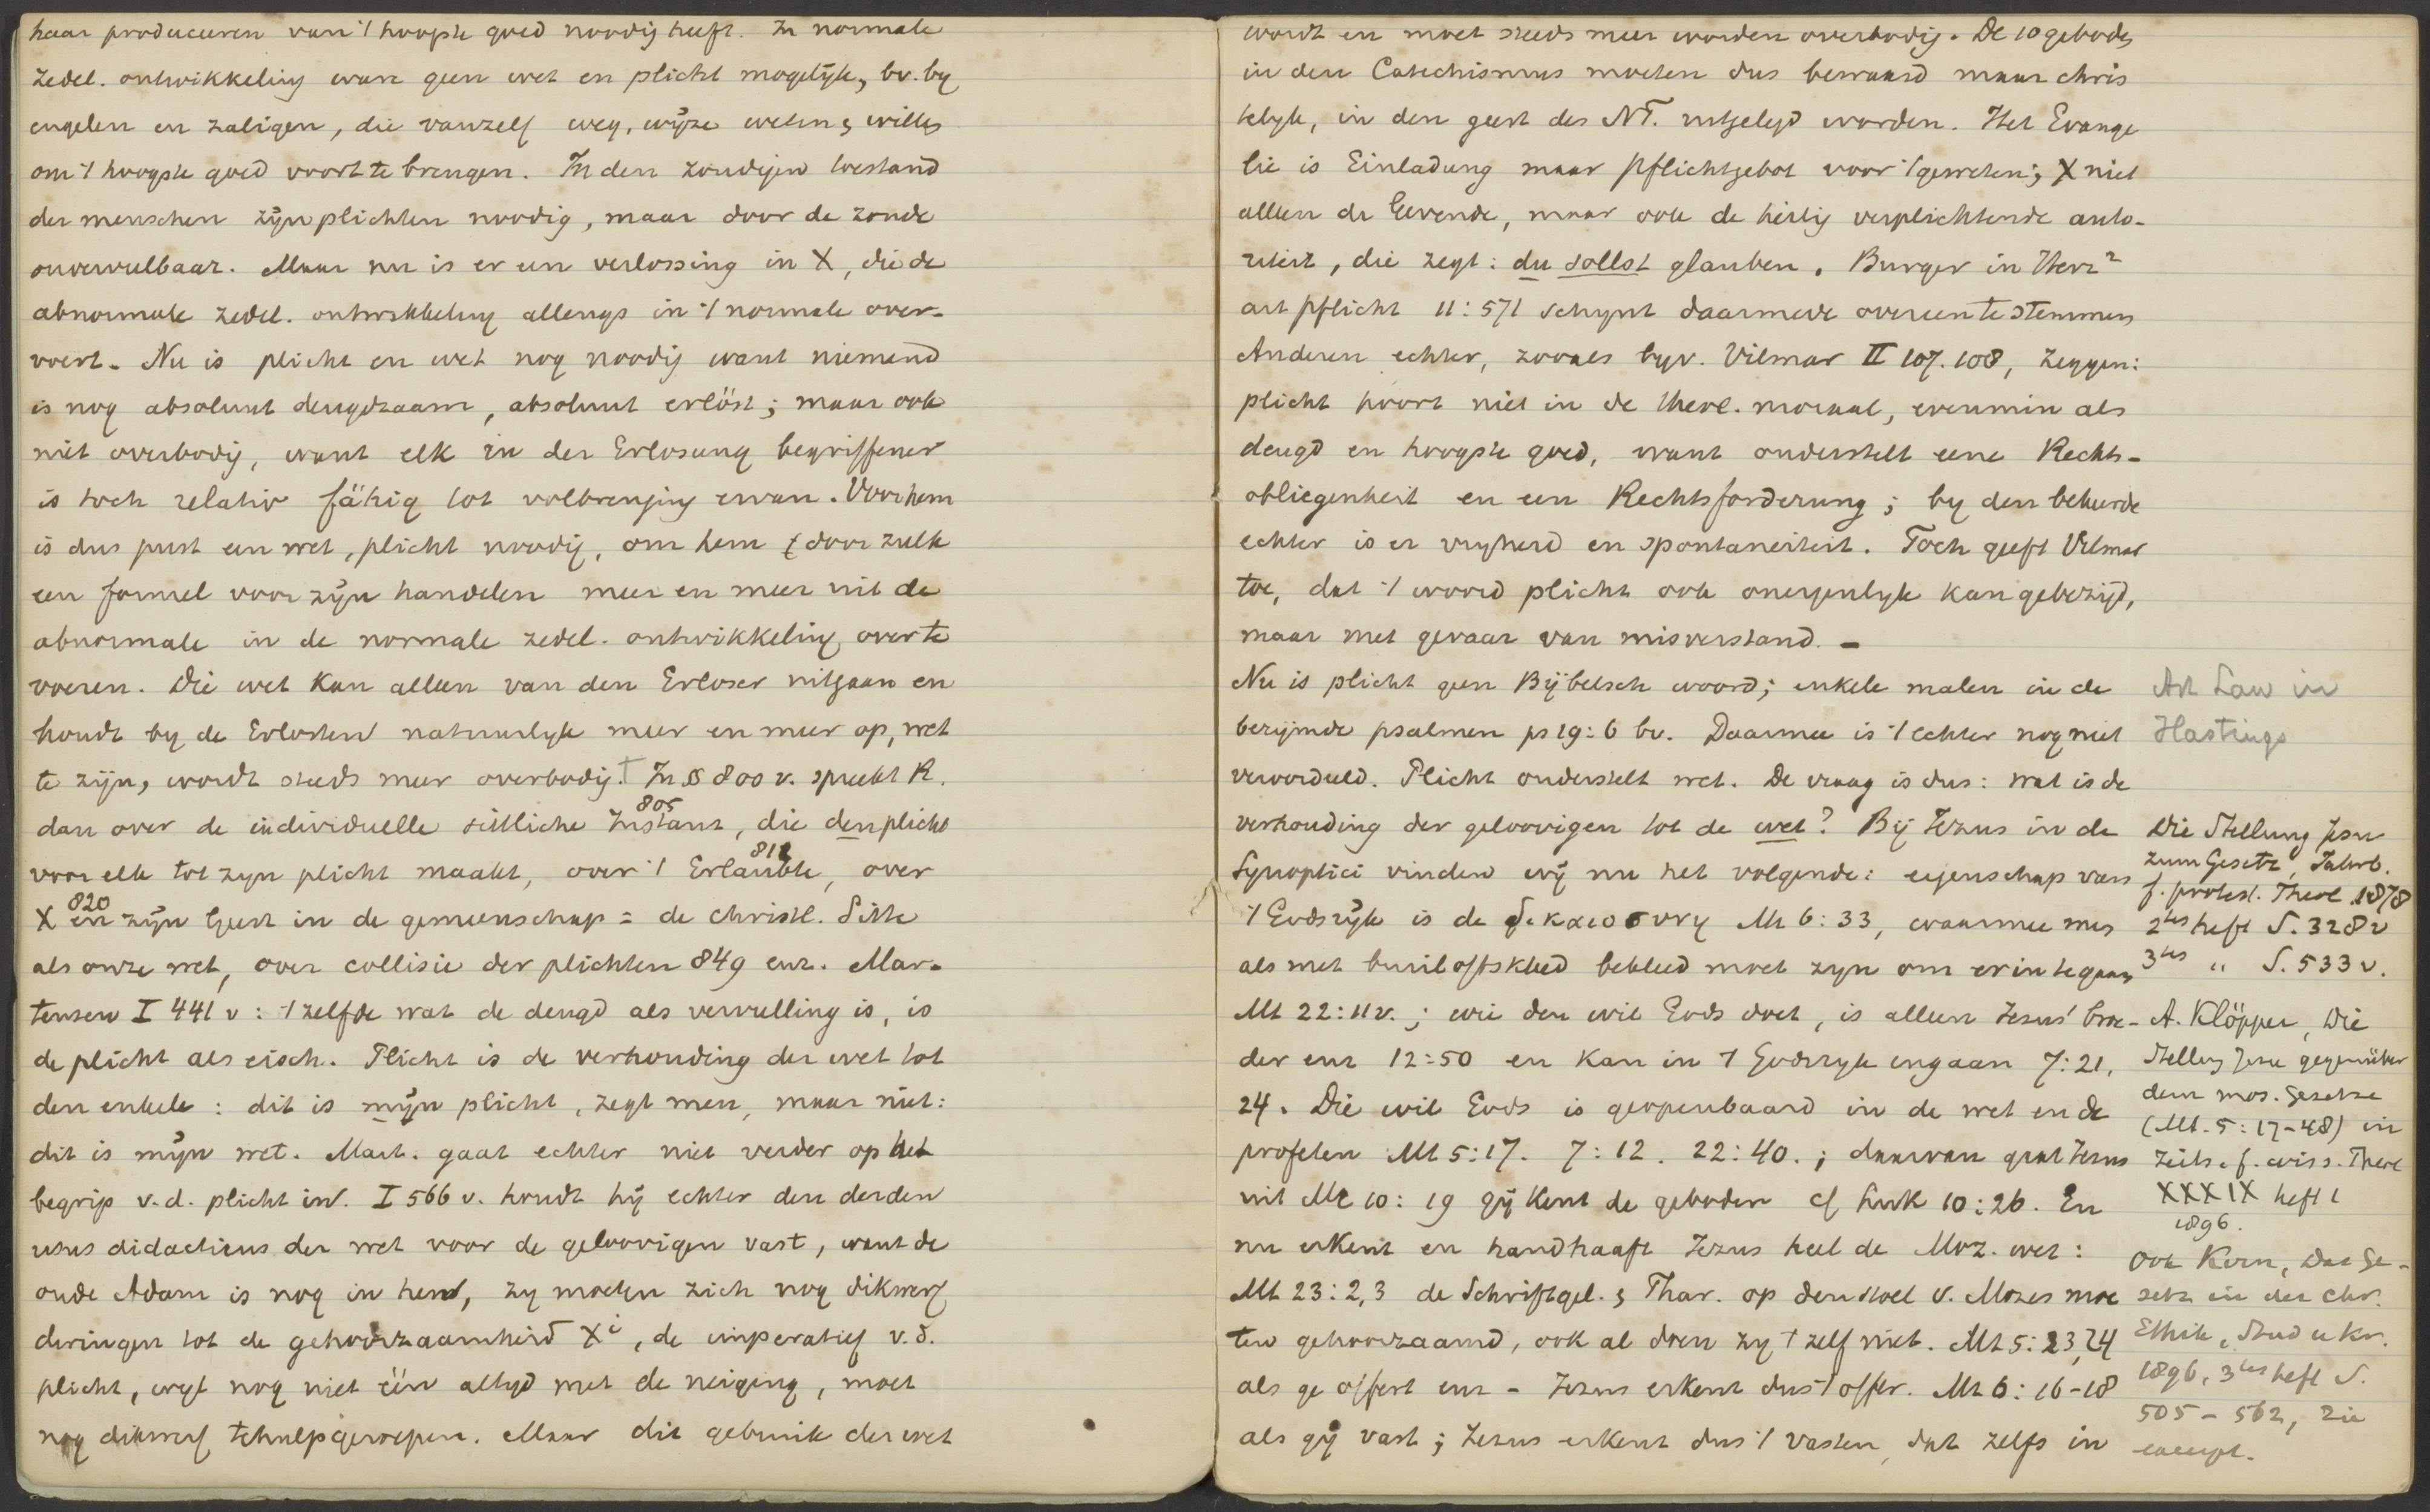 haar produceeren van 't hoogste goed noodig heeft. In normale
zedel. ontwikkeling ware geen wet en plicht mogelijk, bv. by
engelen en zaligen, die vanzelf weg, wijze weten & willen
om 't hoogste goed voort te brengen. In den zondigen toestand
der menschen zijn plichten noodig, maar door de zonde
onvervulbaar. Maar nu is er een verlossing in X, die de
abnormale zedel. ontwikkeling allengs in 't normale over-
voert. Nu is plicht en wet nog noodig want niemand
is nog absoluut deugdzaam, absoluut erlöst; maar ook
niet overbodig, want elk in der Erlosung begriffener
is toch relativ fähig tot volbrenging ervan. Voor hem
is dus juist een wet, plicht noodig, om hem door zulk
een formel voor zijn handelen meer en meer uit de
abnormale in de normale zedel. ontwikkeling over te
voeren. Die wet kan alleen van den Erloser uitgaan en
houdt by de Erlosten natuurlyk meer en meer op, wet
te zijn, wordt steeds meer overbodig.† In § 800 v. spreekt R.
dan over de individuelle sittliche Instanz, 805 die den plicht
voor elk tot zyn plicht maakt, over 't Erlaubte, 812 over
X en 820 zijn Geest in de gemeenschap = de christl. Sitte
als onze wet, over collisie der plichten 849 enz. Mar-
tensen I 441 v: 't zelfde wat de deugd als vervulling is, is
de plicht als eisch. Plicht is de verhouding der wet tot
den enkele: dit is mijn plicht, zegt men, maar niet:
dit is mijn wet. Mart. gaat echter niet verder op het
begrip v.d. plicht in. I 566 v. houdt hij echter den derden
usus didacticus der wet voor de geloovigen vast, want de
oude Adam is nog in hen, zy moeten zich nog dikwerf
dwingen tot de gehoorzaamheid Xi, de imperatief v.d.
plicht, wyl nog niet één altyd met de neiging, moet
nog dikwerf tehulpgeroepen. Maar dit gebruik der wet
wordt en moet steeds meer worden overbodig. De 10 geboden
in den Catechismus moeten dus bewaard maar chris
telyk, in den geest des NT. uitgelegd worden. Het Evange
lie is Einladung maar Pflichtgebot voor 't geweten; X niet
alleen de Gevende, maar ook de heilig verplichtende auto-
riteit, die zegt: du sollst glauben. Burger in Herz²
art pflicht 11:571 schynt daarmede overeen te stemmen
Anderen echter, zooals byv. Vilmar II 107.108, zeggen:
plicht hoort niet in de theol. moraal, evenmin als
deugd en hoogste goed, want onderstelt eene Rechts-
obliegenheit en een Rechtsforderung; by den bekeerde
echter is er vryheid en spontaneiteit. Toch geeft Vilmar
toe, dat 't woord plicht ook oneigenlyk kan gebezigd,
maar met gevaar van misverstand. -
Nu is plicht geen Bijbelsch woord; enkele malen in de
berijmde psalmen ps 19:6 bv. Daarmee is 't echter nog niet
veroordeeld. Plicht onderstelt wet. De vraag is dus: wat is de
verhouding der geloovigen tot de wet? Bij Jezus in de
Synoptici vinden wij nu het volgende: eigenschap van
't Godsrijk is de δικαιοσυνη Mt 6:33, waarmee men
als met bruiloftskleed bekleed moet zyn om erin te gaan
Mt 22:11v.; wie den wil Gods doet, is alleen Jezus' broe-
der enz 12:50 en kan in 't Godsryk ingaan 7:21,
24. Die wil Gods is geopenbaard in de wet en de
profeten Mt 5:17. 7:12. 22:40.; daarvan gaat Jezus
uit Mc 10:19 gij kent de geboden cf Luk 10:26. En
nu erkent en handhaaft Jezus heel de Moz. wet:
Mt 23:2,3 de Schriftgel. & Phar. op den stoel v. Mozes moe
ten gehoorzaamd, ook al doen zy 't zelf niet. Mt 5:23,24
als ge offert enz - Jezus erkent dus 't offer. Mt 6:16-18
als gij vast; Jezus erkent dus 't vasten, dat zelfs in
Art Law in
Hastings
Die Stellung Jesu
zum Gesetz, Jahrb.
f. protest. Theol. 1878
2tes heft S. 328 v
3tes " S. 533 v.
A. Klöpper, Die
Stellung Jesu gegenüber
dem mos. Gesetze
(Mt. 5:17-48) in
Zeits. f. wiss. Theol
XXXIX heft 1
1896.
Ook Kern, Das Ge-
setz in der chr.
Ethik, Stud u Kr.
1896, 3tes heft S.
505-562, zie
excerpt.